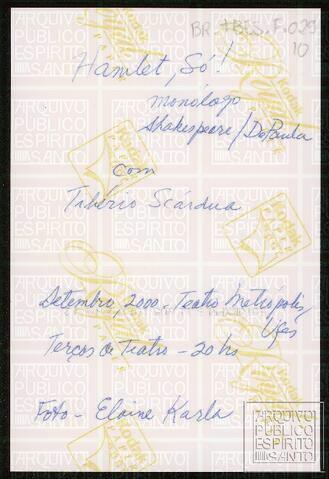 BR.TBES.F.029
10
Hamlet, Só!
monólogo
Shakespeare/DePaula
com
Tibério Scárdua
Setembro, 2000 - Teatro Metrópolis/
Ufes
Terças de Teatro - 20 hs
Foto - Elaine Karla
ARQUIVO
PÚBLICO
ESPÍRITO
SANTO